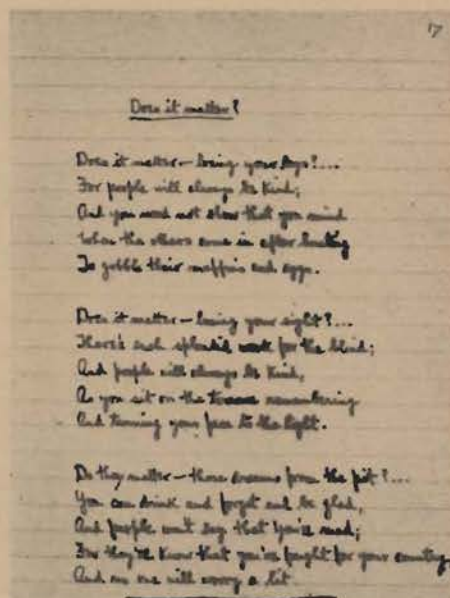 17
Does it matter?
Does it matter — losing your legs?...
For people will always be kind;
And you need not show that you mind
When the others come in after hunting
To gobble their muffins and eggs.
Does it matter — losing your sight?...
There's such splendid work for the blind;
And people will always be kind,
As you sit on the terrace remembering
And turning your face to the light.
Do they matter — those dreams from the pit?...
You can drink and forget and be glad,
And people won't say that you're mad;
For they'll know that you've fought for your country,
And no one will worry a bit.